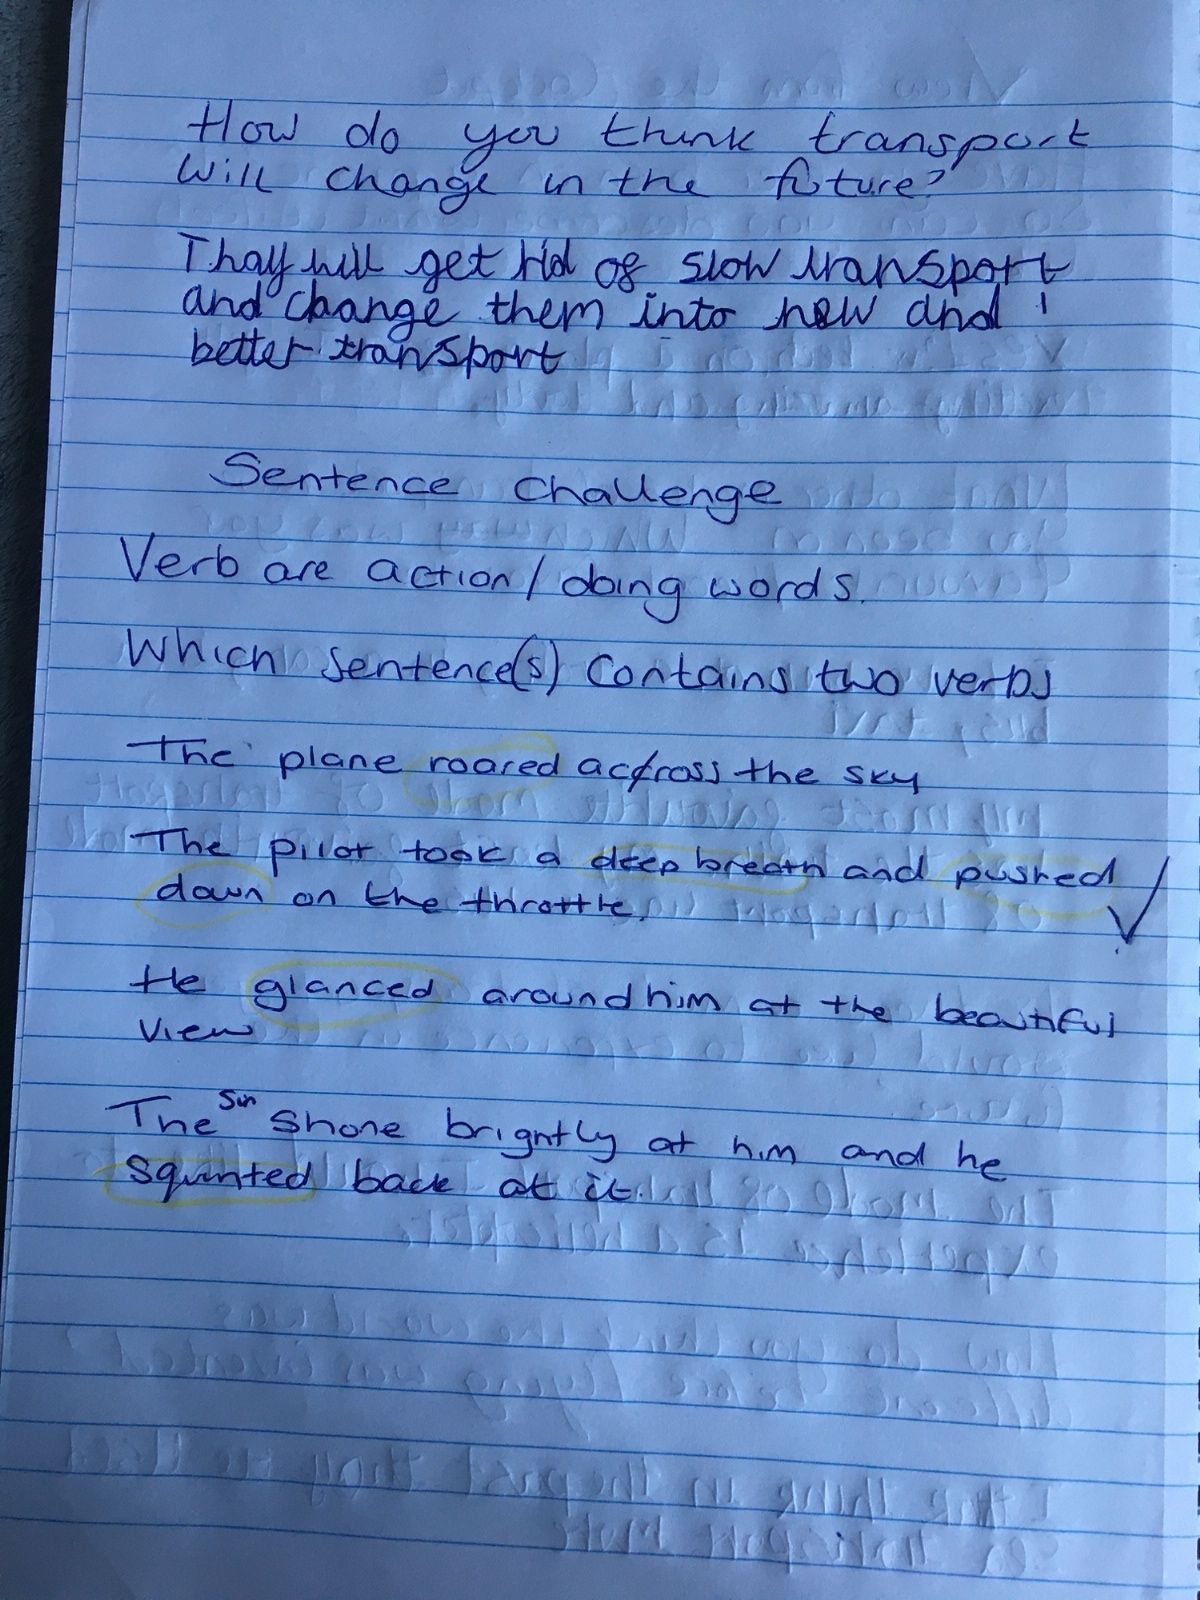 How do you think transport
will change in the future?
Thay will get rid of slow transport
and change them into new and
better transport
Sentence Challenge
Verb are action/doing words.
Which sentence(s) contains two verbs
The plane roared across the sky
The pilot took a deep breath and pushed
down on the throttle.
He glanced around him at the beautiful
view
The sun shone brightly at him and he
squinted back at it.